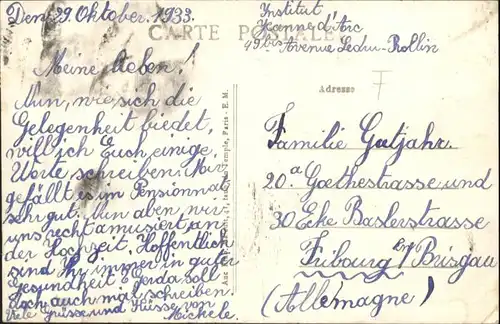 Den 29. Oktober. 1933.
CARTE POSTALE
Meine Lieben!
Nun, wie sich die
Gelegenheit biedet,
will ich Euch einige
Worte schreiben. Mir
gefällt es im Pensionnat
sehr gut. Nun aben, wir
uns recht amusiert an
der Hochzeit. Hoffentlich
sind Ihr immer in guter
Gesundheit. Gerda soll
doch auch mal schreiben.
Viele Grüsse und Küsse von
Michele.
Temple, Paris - E.M.
Institut
Jeanne d'Arc
49 bis Avenue Ledru-Rollin
Adresse
Familie Gutjahr.
20.a Goethestrasse und
30 Ecke Baslerstrasse
Fribourg e/ Brisgau
(Allemagne)